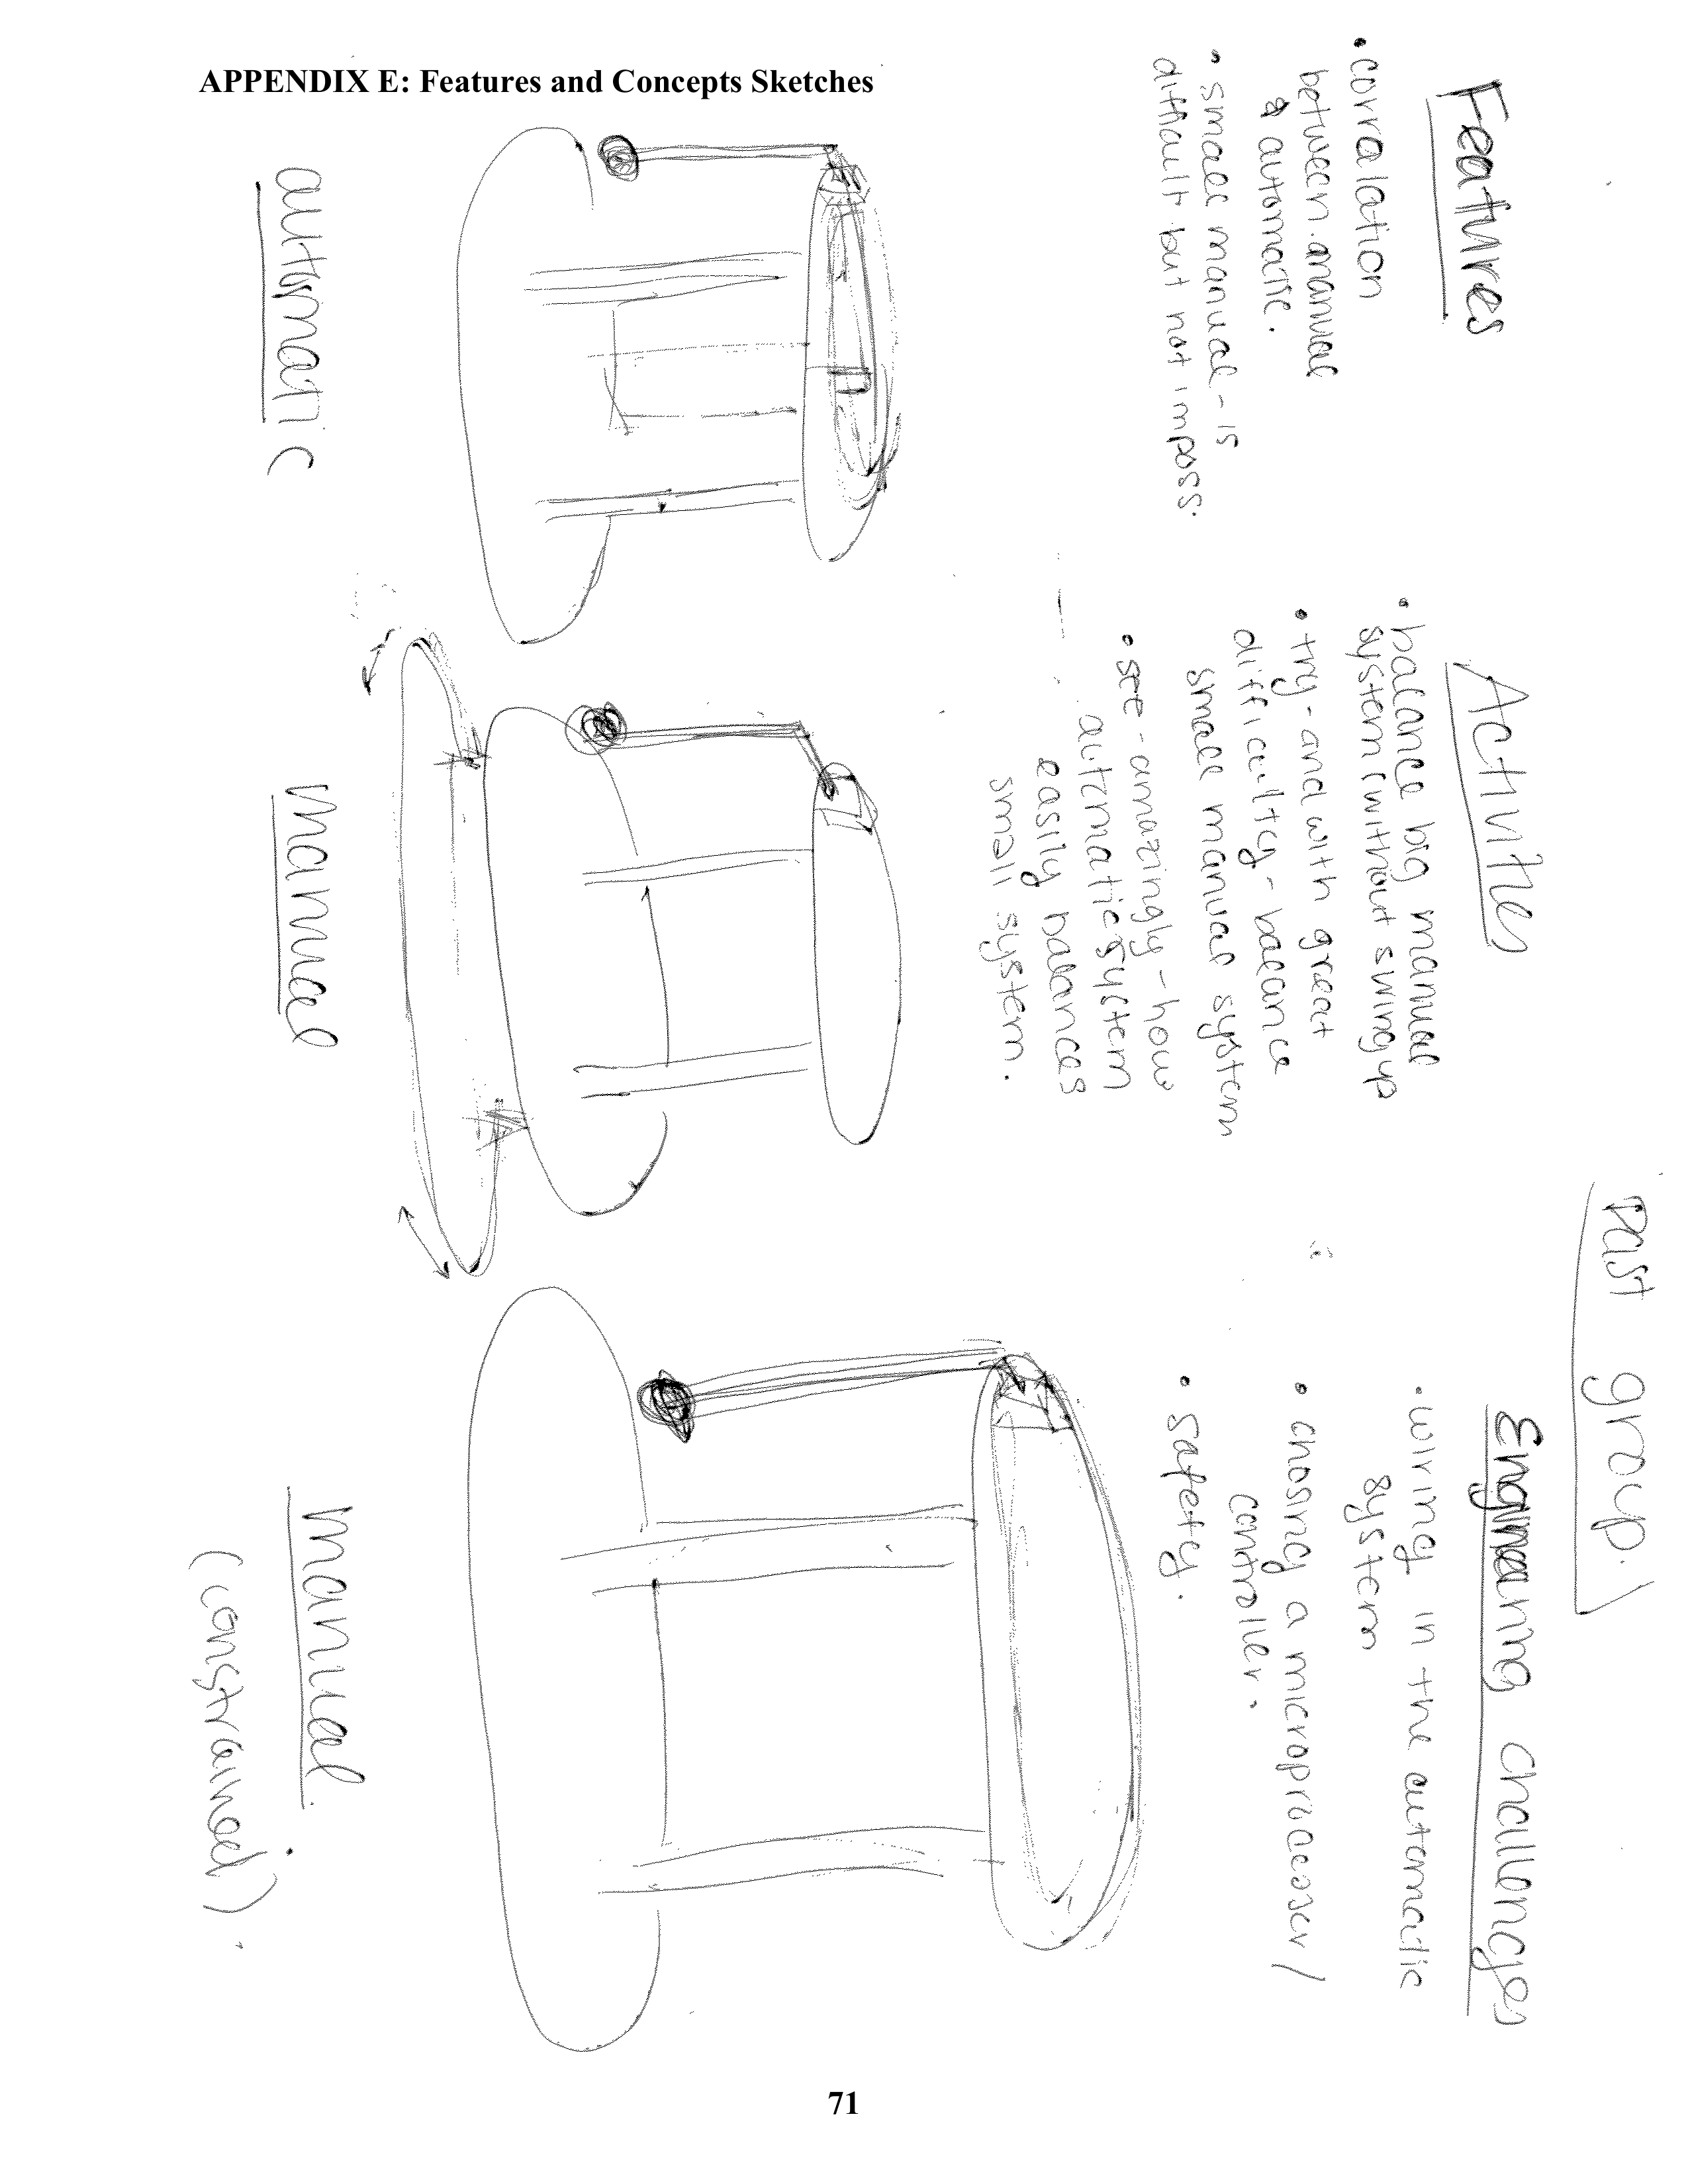 APPENDIX E: Features and Concepts Sketches
past group.
Features
• corralation
between manual
& automatic.
• small manual - is
difficult but not imposs.
Activites
• balance big manual
system (without swing up
• try - and with great
difficulty - balance
small manual system
• see - amazingly - how
automatic system
easily balances
small system.
Engineering challenges
• wiring in the automatic
system
• chosing a microproccesser /
controller.
• safety.
automatic
manual
manual.
(constrained).
71